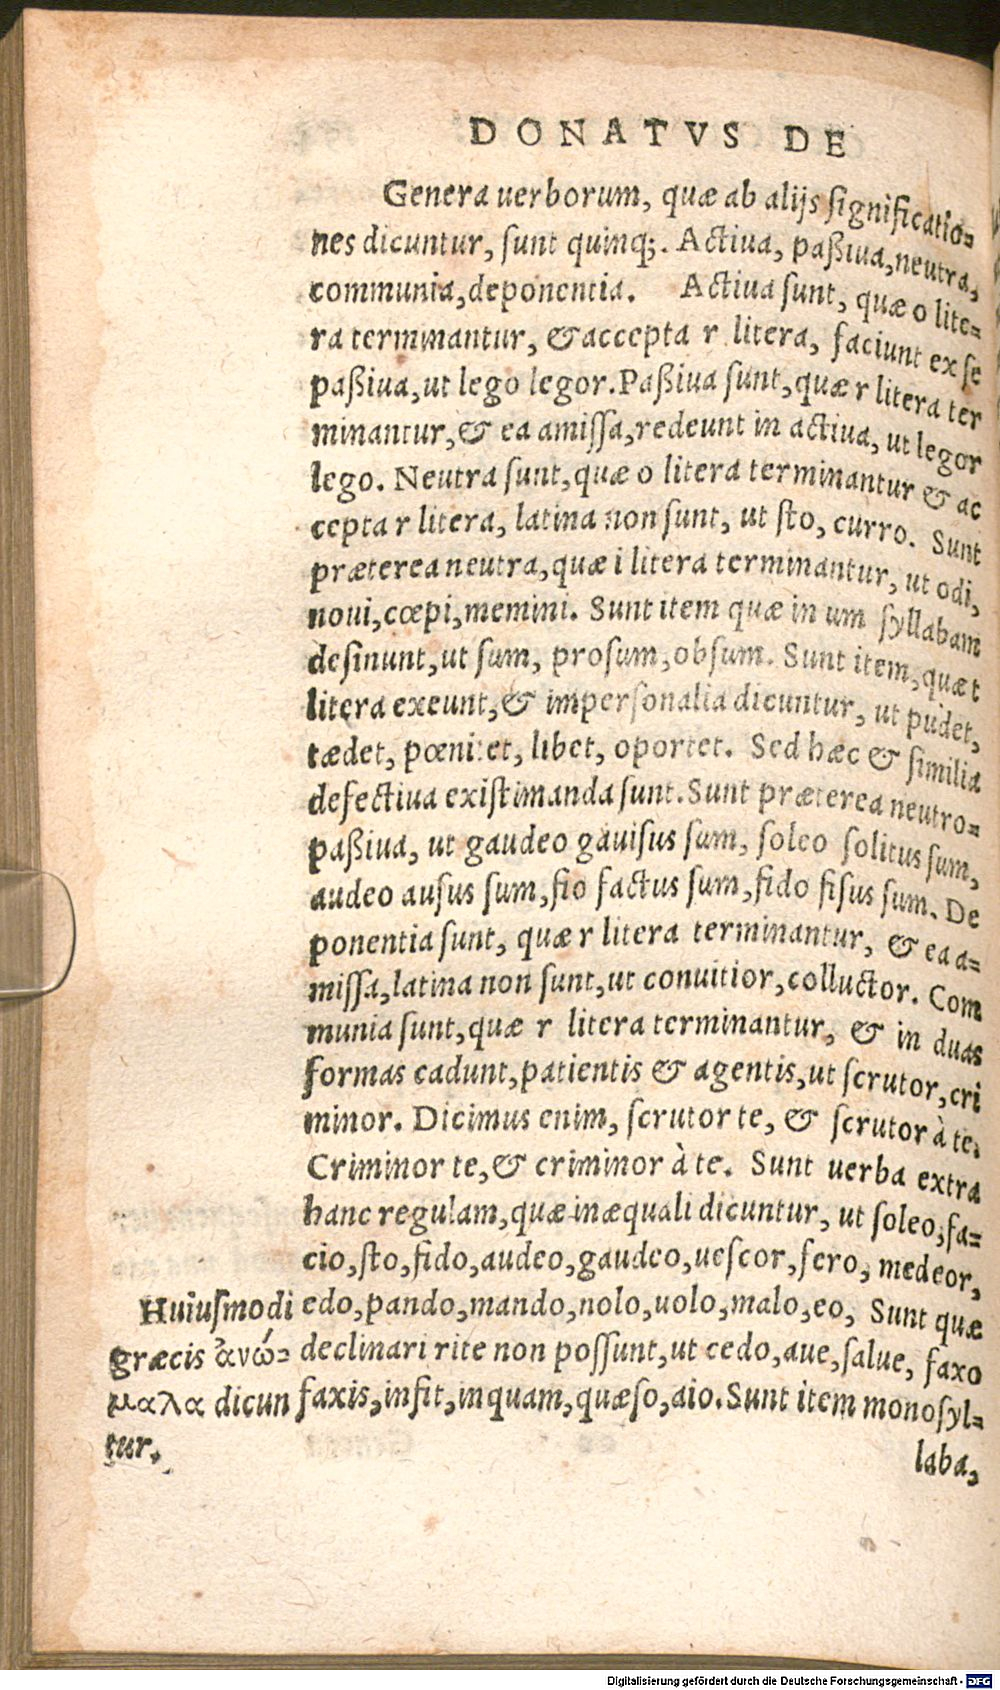 DONATVS DE
Genera uerborum, quæ ab alijs significatio=
nes dicuntur, sunt quinq;. Actiua, paßiua, neutra,
communia, deponentia. Actiua sunt, quæ o lite=
ra terminantur, & accepta r litera, faciunt ex se
paßiua, ut lego legor. Paßiua sunt, quæ r litera ter
minantur, & ea amissa, redeunt in actiua, ut legor
lego. Neutra sunt, quæ o litera terminantur & ac
cepta r litera, latina non sunt, ut sto, curro. Sunt
præterea neutra, quæ i litera terminantur, ut odi,
noui, cœpi, memini. Sunt item quæ in um syllabam
desinunt, ut sum, prosum, obsum. Sunt item, quæ t
litera exeunt, & impersonalia dicuntur, ut pudet,
tædet, pœnitet, libet, oportet. Sed hæc & similia
defectiua existimanda sunt. Sunt præterea neutro=
paßiua, ut gaudeo gauisus sum, soleo solitus sum,
audeo ausus sum, fio factus sum, fido fisus sum. De
ponentia sunt, quæ r litera terminantur, & ea a=
missa, latina non sunt, ut conuitior, colluctor. Com
munia sunt, quæ r litera terminantur, & in duas
formas cadunt, patientis & agentis, ut scrutor, cri
minor. Dicimus enim, scrutor te, & scrutor à te.
Criminor te, & criminor à te. Sunt uerba extra
hanc regulam, quæ inæquali dicuntur, ut soleo, fa=
cio, sto, fido, audeo, gaudeo, uescor, fero, medeor,
edo, pando, mando, nolo, uolo, malo, eo, Sunt quæ
declinari rite non possunt, ut cedo, aue, salue, faxo
faxis, infit, inquam, quæso, aio. Sunt item monosyl=
laba,
Huiusmodi
græcis ἀνώ=
μαλα dicun
tur.
Digitalisierung gefördert durch die Deutsche Forschungsgemeinschaft - DFG